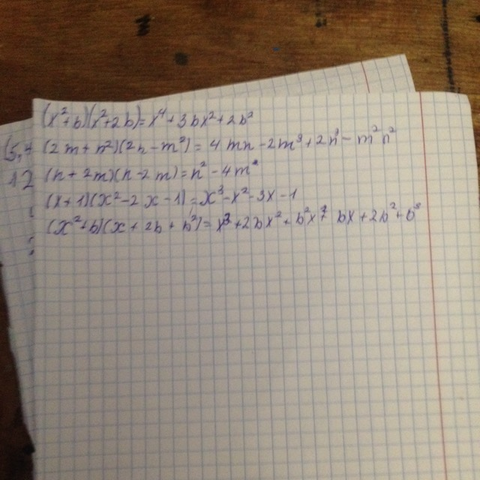 (x²+b)(x²+2b)=x⁴+3bx²+2b²
(2m+n²)(2n-m²)=4mn-2m³+2n³-m²n²
(n+2m)(n-2m)=n²-4m²
(x+1)(x²-2x-1)=x³-x²-3x-1
(x²+b)(x+2b+b²)=x³+2bx²+b²x²+bx+2b²+b³
(5,+
12